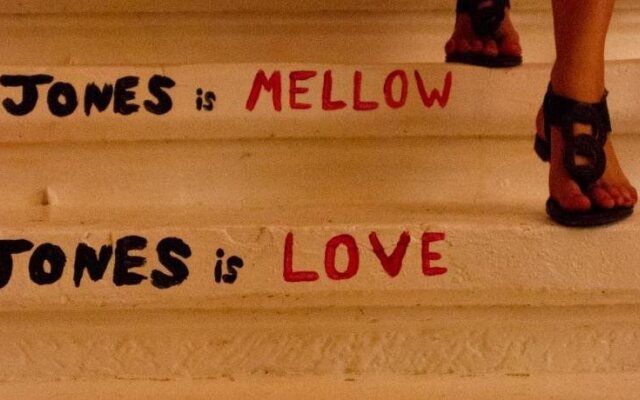 JONES is MELLOW
JONES is LOVE